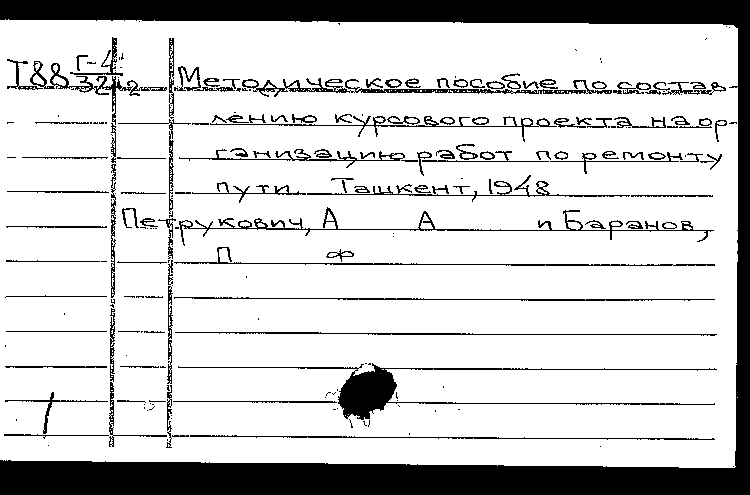 Т88 Г-4 Методическое пособие по состав-
324 2
лению курсового проекта на ор-
ганизацию работ по ремонту
пути. Ташкент, 1948
Петрукович, А А и Баранов,
П Ф